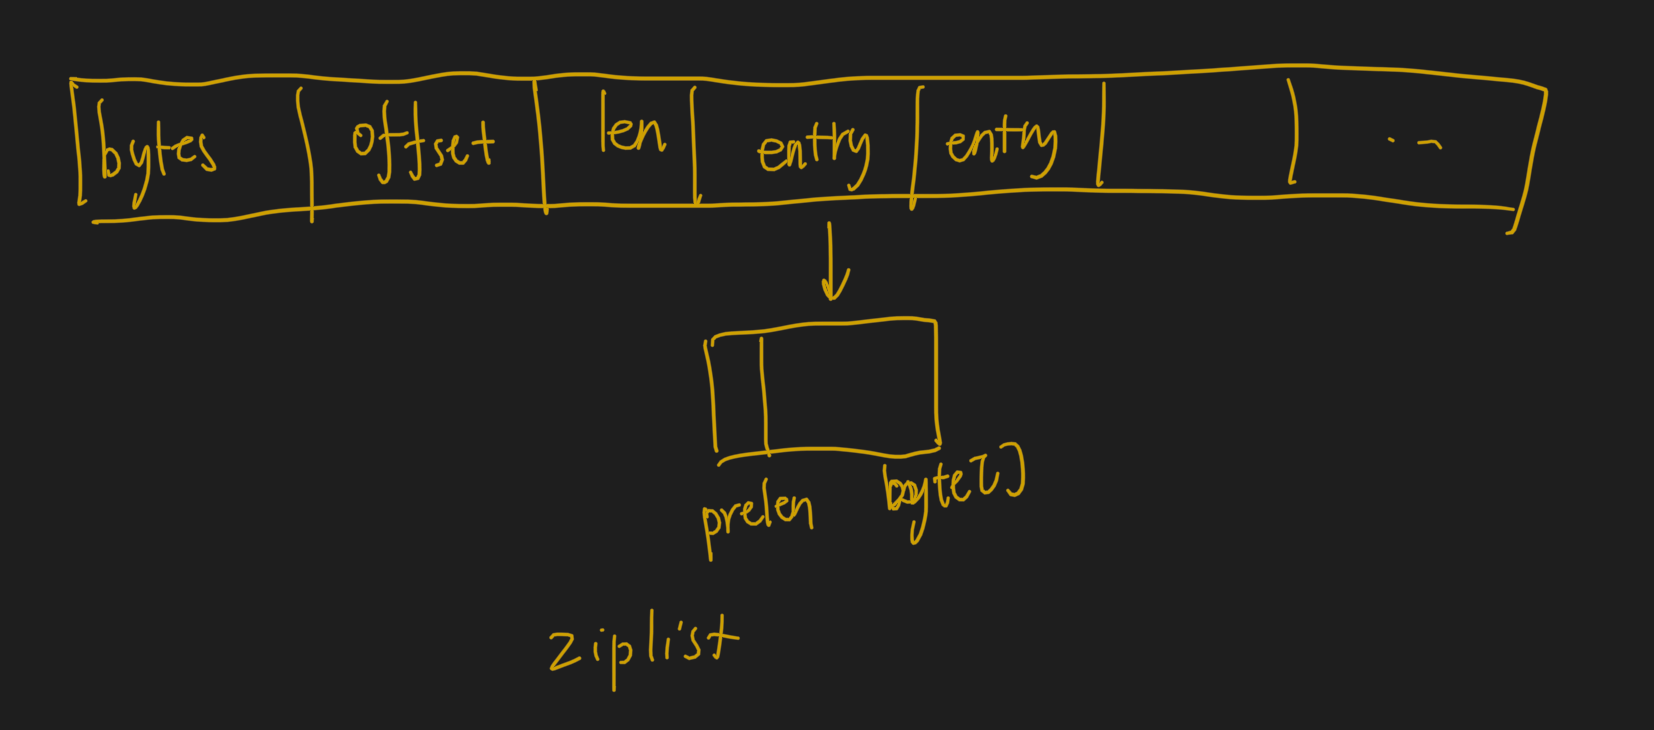 bytes offset len entry entry ...
prelen byte[]
ziplist